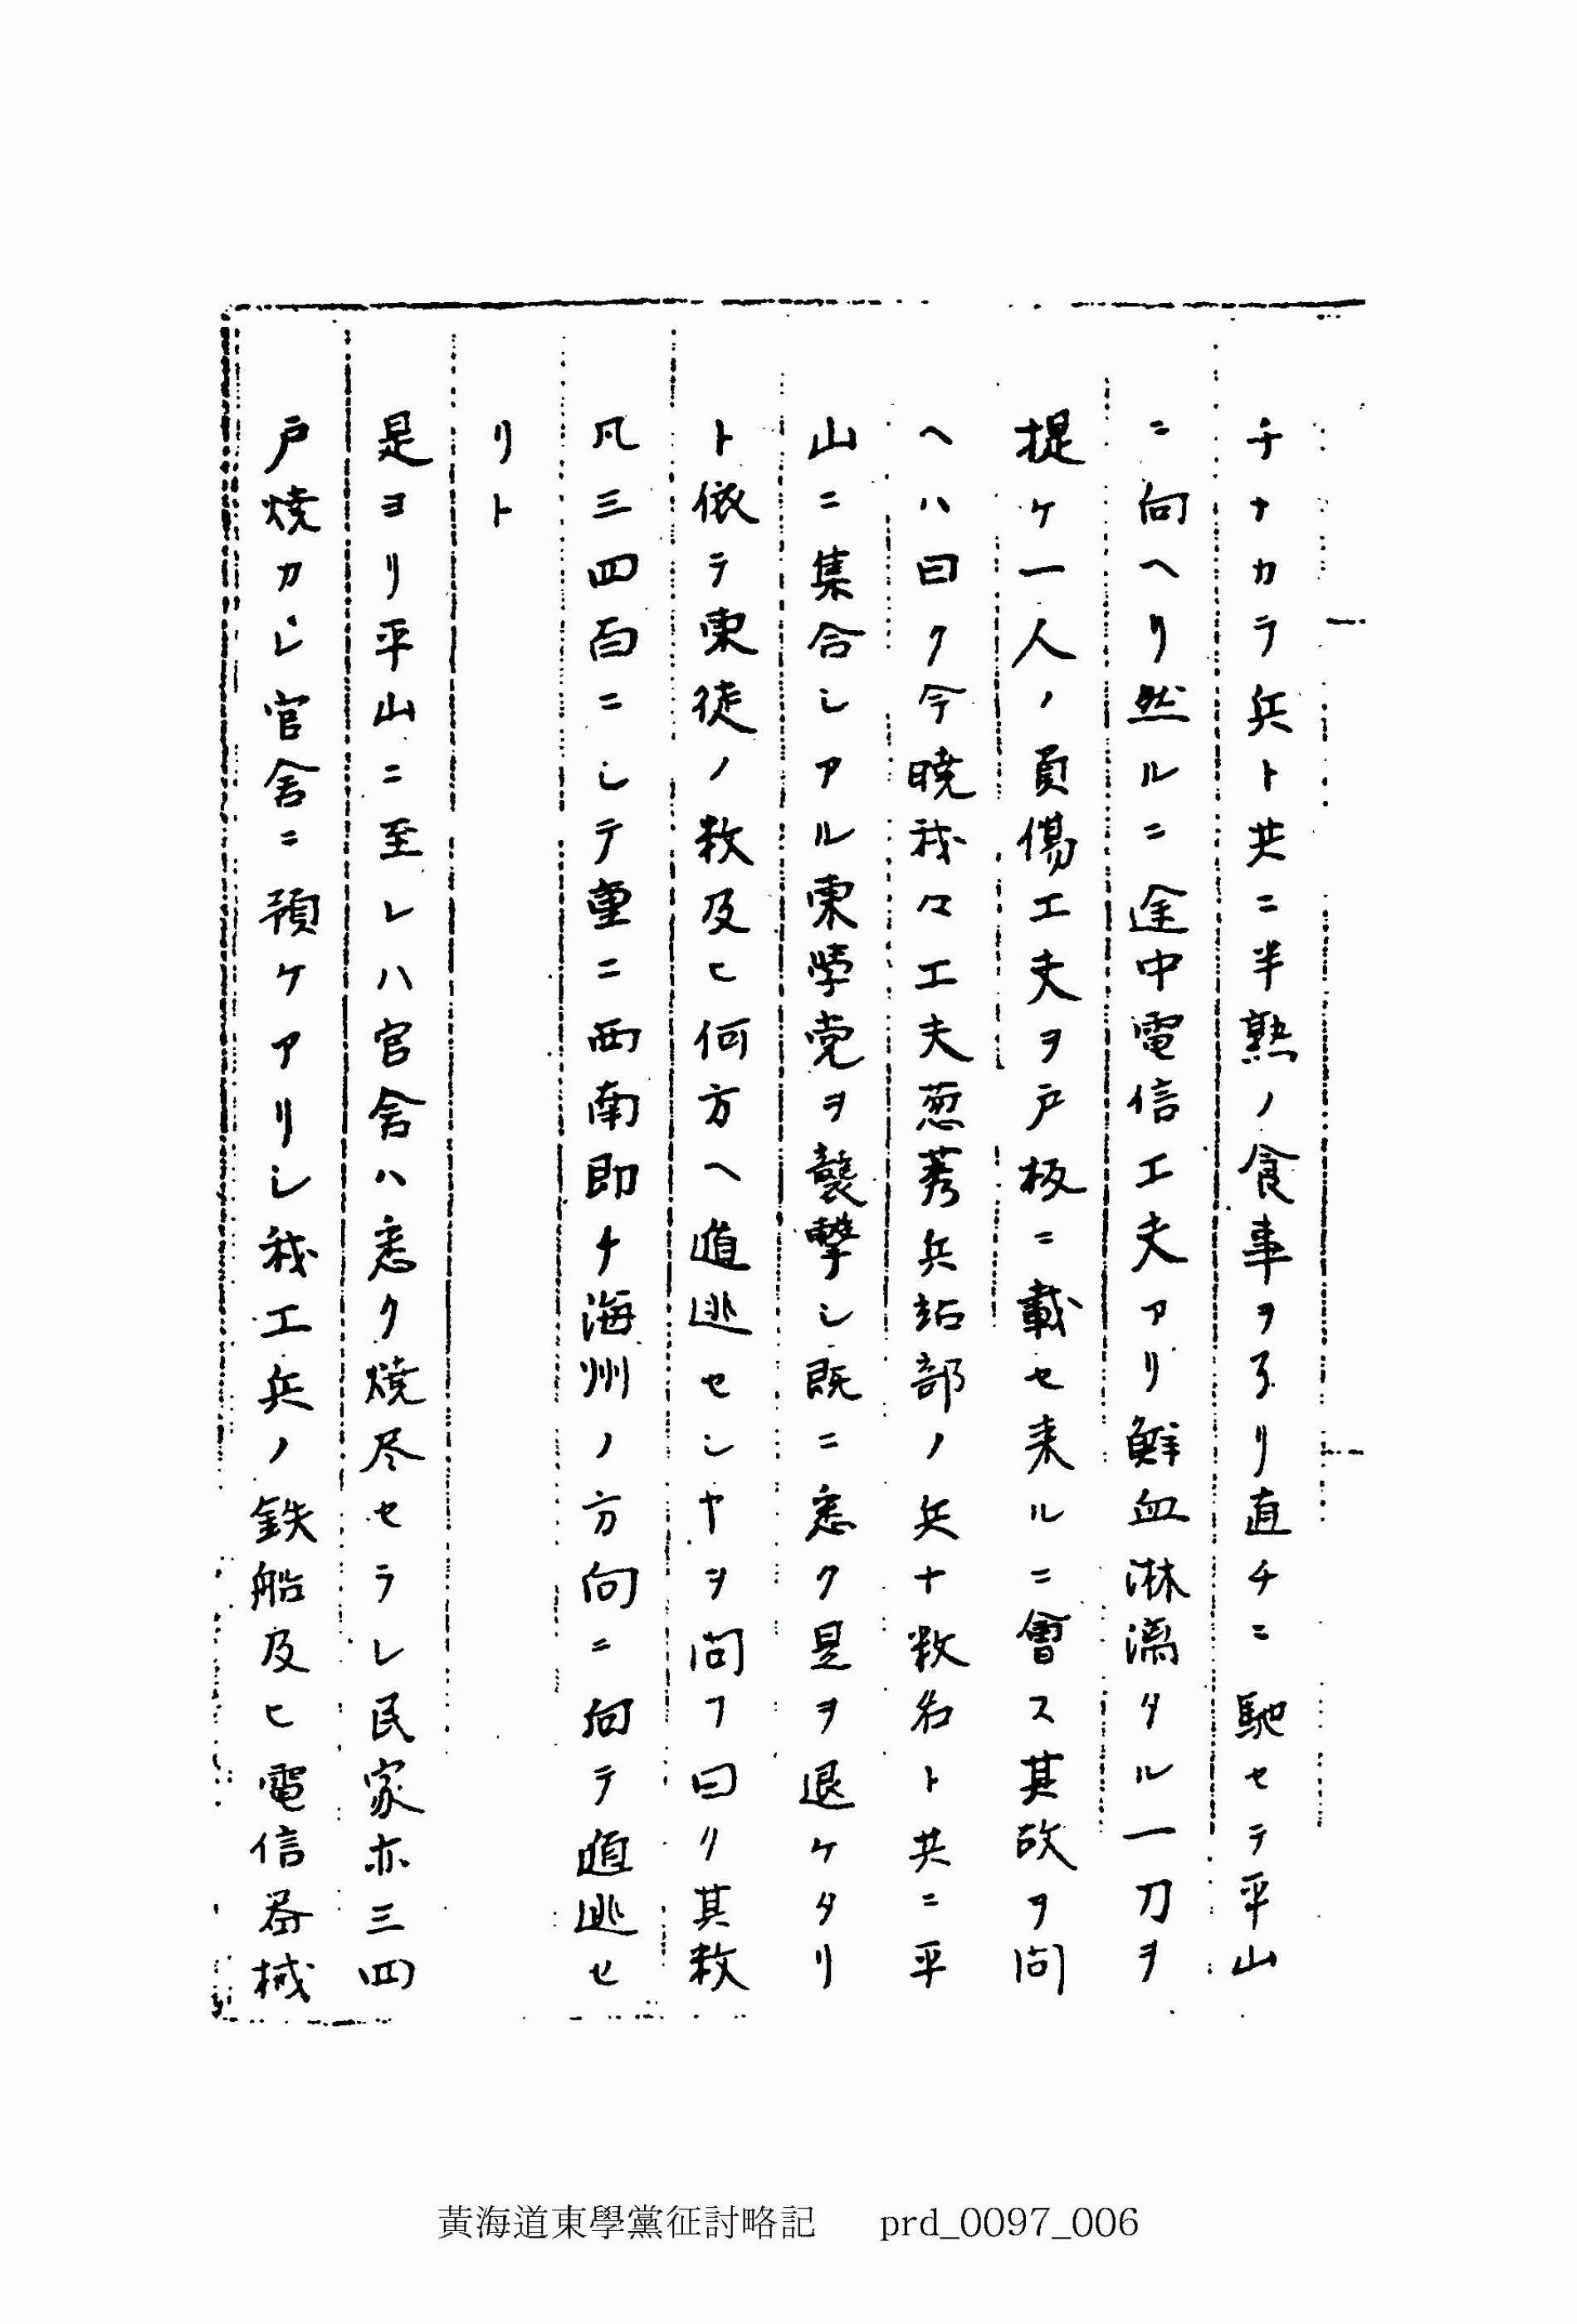 チナカラ兵ト共ニ半熟ノ食事ヲ了リ直チニ馳セテ平山
ニ向ヘリ然ルニ途中電信工夫アリ鮮血淋漓タル一刀ヲ
提ケ一人ノ負傷工夫ヲ戸板ニ載セ来ルニ會ス其故ヲ問
ヘハ曰ク今暁我々工夫葱秀兵站部ノ兵十数名ト共ニ平
山ニ集合シアル東學党ヲ襲撃シ既ニ悉ク是ヲ退ケタリ
ト依テ東徒ノ数及ヒ何方ヘ遁逃セシヤヲ問フ曰リ其数
凡三四百ニシテ重ニ西南即チ海州ノ方向ニ向テ遁逃セ
リト
是ヨリ平山ニ至レハ官舎ハ悉ク焼尽セラレ民家亦三四
戸焼カレ官舎ニ預ケアリシ我工兵ノ鉄船及ヒ電信器械
黃海道東學黨征討略記 prd_0097_006